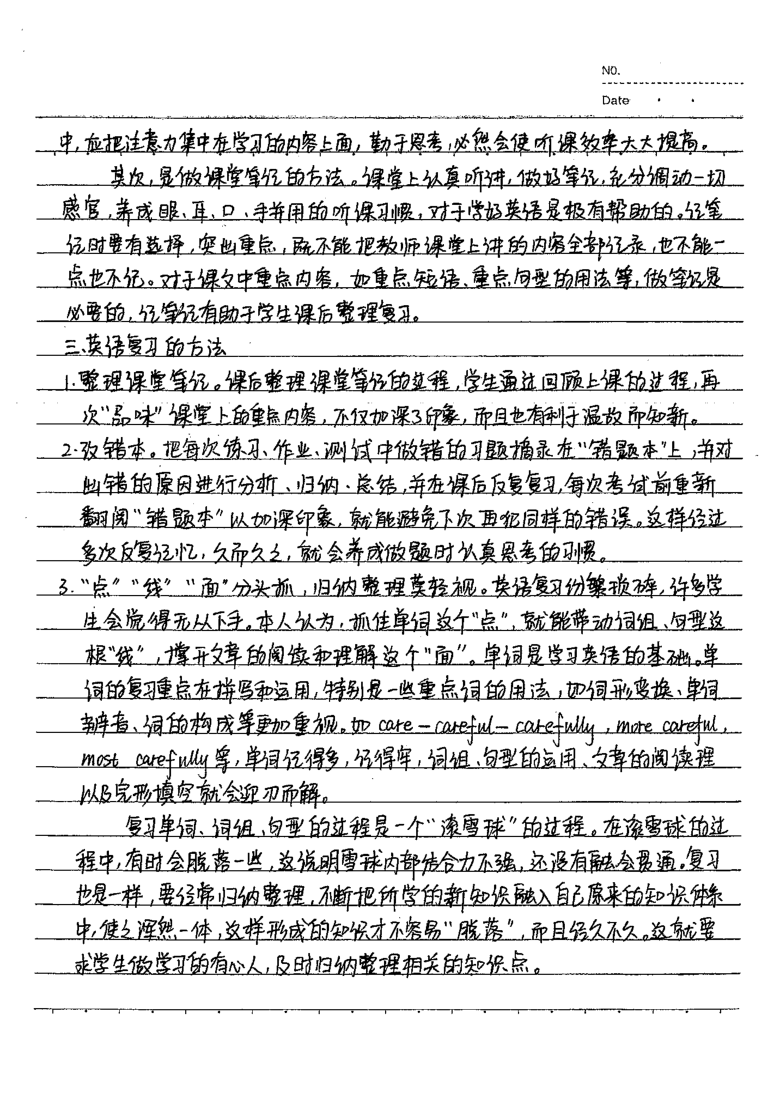 NO.
Date
中,应把注意力集中在学习的内容上面,勤于思考,必然会使听课效率大大提高。
其次,是做课堂笔记的方法。课堂上认真听讲,做好笔记,充分调动一切
感官,养成眼、耳、口、手并用的听课习惯,对于学好英语是极有帮助的。记笔
记时要有选择,突出重点,既不能把教师课堂上讲的内容全部记录,也不能一
点也不记。对于课文中重点内容,如重点短语、重点句型的用法等,做笔记是
必要的,记笔记有助于学生课后整理复习。
三.英语复习的方法
1.整理课堂笔记。课后整理课堂笔记的过程,学生通过回顾上课的过程,再
次“品味”课堂上的重点内容,不仅加深了印象,而且也有利于温故而知新。
2.改错本。把每次练习、作业、测试中做错的习题摘录在“错题本”上,并对
出错的原因进行分析、归纳、总结,并在课后反复复习,每次考试前重新
翻阅“错题本”以加深印象,就能避免下次再犯同样的错误。这样经过
多次反复记忆,久而久之,就会养成做题时认真思考的习惯。
3.“点”“线”“面”分头抓,归纳整理莫轻视。英语复习份繁琐碎,许多学
生会觉得无从下手。本人认为,抓住单词这个“点”,就能带动词组、句型这
根“线”,撑开文章的阅读和理解这个“面”。单词是学习英语的基础。单
词的复习重点在拼写和运用,特别是一些重点词的用法,如词形变换、单词
辨音、词的构成等更加重视。如 care-careful-carefully, more careful,
most carefully等,单词记得多,记得牢,词组、句型的运用、文章的阅读理
以及完形填空就会迎刃而解。
复习单词、词组、句型的过程是一个“滚雪球”的过程。在滚雪球的过
程中,有时会脱落一些,这说明雪球内部结合力不强,还没有融会贯通。复习
也是一样,要经常归纳整理,不断把所学的新知识融入自己原来的知识体系
中,使之浑然一体,这样形成的知识才不容易“脱落”,而且经久不久。这就要
求学生做学习的有心人,及时归纳整理相关的知识点。